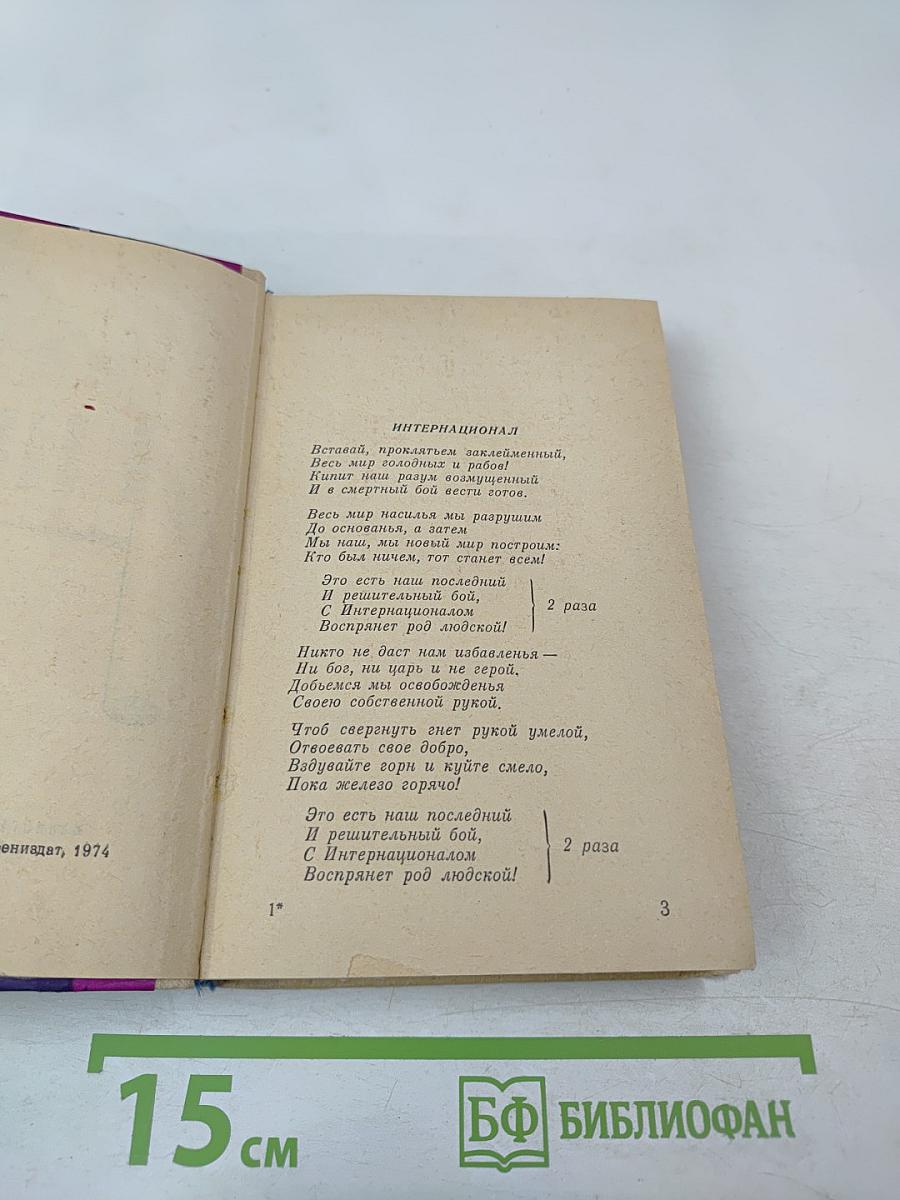 ИНТЕРНАЦИОНАЛ
Вставай, проклятьем заклейменный,
Весь мир голодных и рабов!
Кипит наш разум возмущенный
И в смертный бой вести готов.
Весь мир насилья мы разрушим
До основанья, а затем
Мы наш, мы новый мир построим:
Кто был ничем, тот станет всем!
Это есть наш последний
И решительный бой,
С Интернационалом
Воспрянет род людской!
2 раза
Никто не даст нам избавленья —
Ни бог, ни царь и не герой.
Добьемся мы освобожденья
Своею собственной рукой.
Чтоб свергнуть гнет рукой умелой,
Отвоевать свое добро,
Вздувайте горн и куйте смело,
Пока железо горячо!
Это есть наш последний
И решительный бой,
С Интернационалом
Воспрянет род людской!
2 раза
1*
3
ениздат, 1974
15 см
БФ БИБЛИОФАН